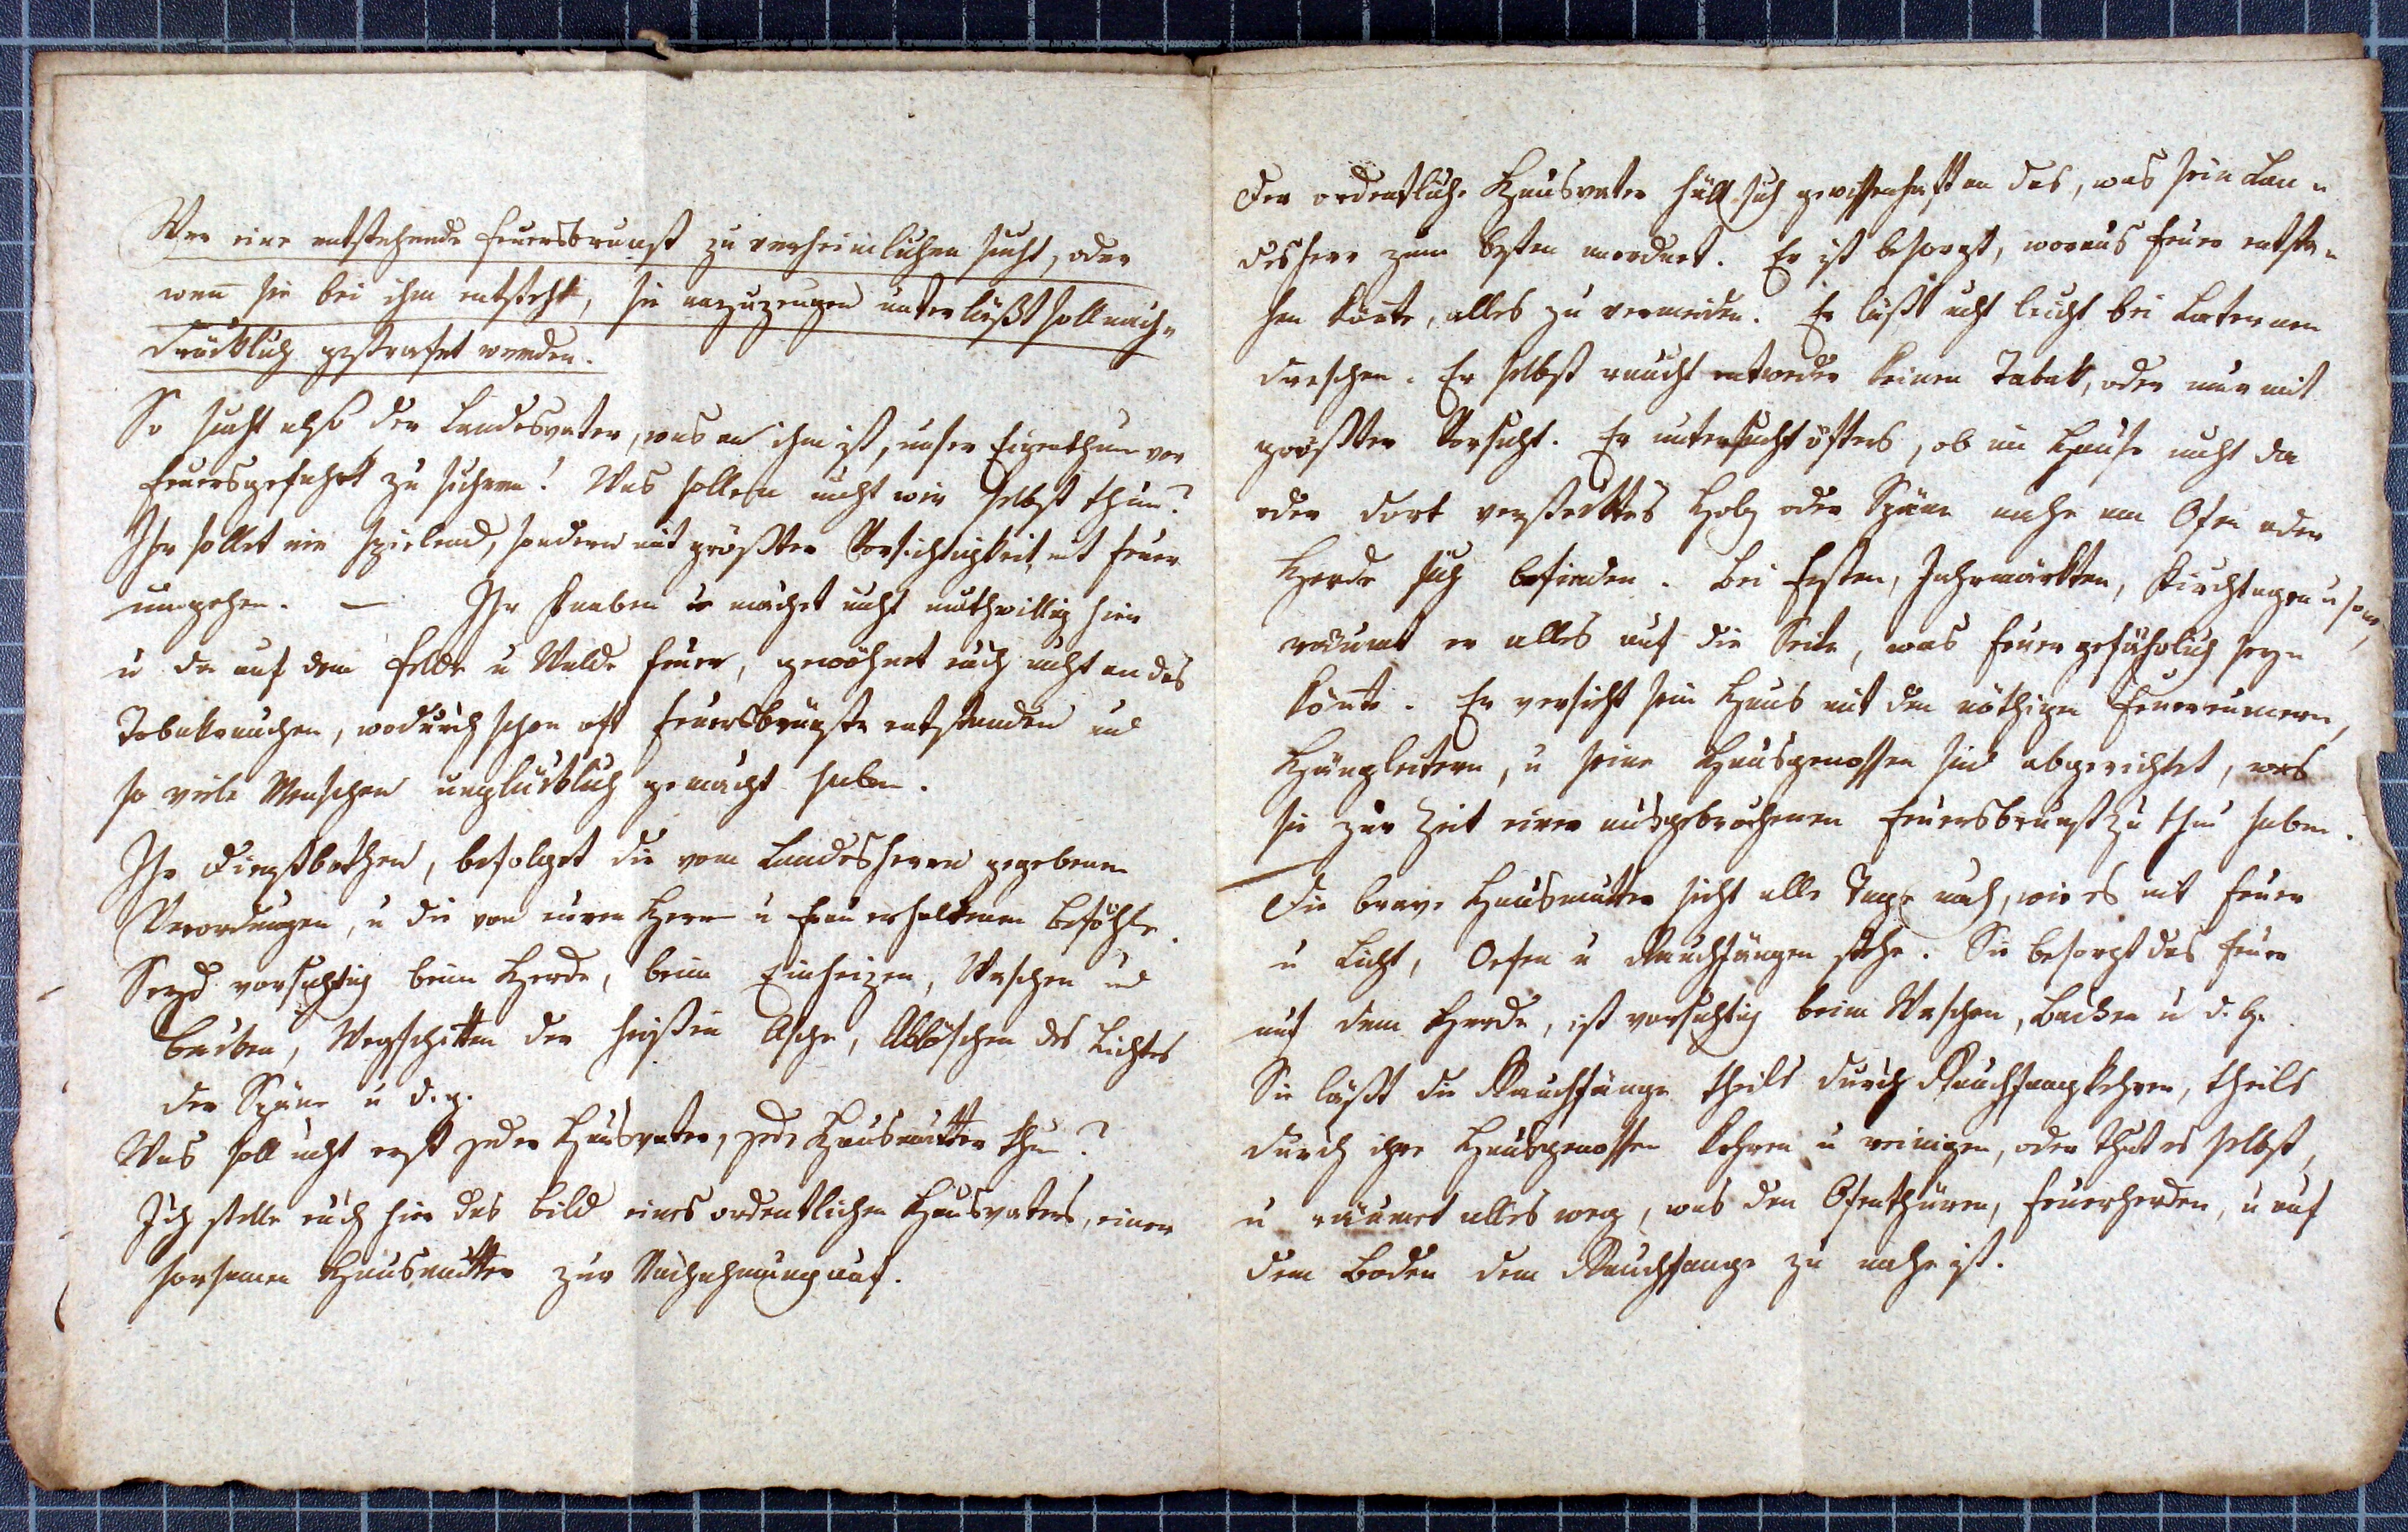 Wer eine entstehende Feuersbrunst zu verheimlichen sucht, oder
weñ sie bei ihm entsteht, sie anzuzeugen unterläßt soll nach-
drücklich gestrafet werden.
So sucht also der Landesvater, was an ihm ist, unser Eigenthum vor
Feuersgefahr zu sichern! Was sollen nicht wir selbst thun?
Ihr sollet nie spielend, sondern mit größter Vorsichtigkeit mit Feuer
umgehen. — Ihr Knaben machet nicht muthwillig hier
u da auf dem Felde u Walde Feuer, gewöhnet euch nicht an das
Tobakrauchen, wodurch schon oft Feuersbrünste entstanden und
so viele Menschen unglücklich gemacht haben.
Ihr Dienstbothen, befolget die vom Landesherrn gegebenen
Verordnungen, u die von euren Herrn u Frau erhaltenen Befehle.
Seyd vorsichtig beim Herde, beim Einheizen, Waschen und
Backen, Wegschitten der heißen Asche, Ablöschen des Lichtes
der Späne u d. g.
Was soll nicht erst jeder Hausvater, jede Hausmutter thun?
Ich stelle euch hier das Bild eines ordentlichen Hausvaters, einer
sorsamen Hausmutter zur Nachahmung auf.
Der ordentliche Hausvater hält sich gewissenhaft an das, was sein Lan-
desherr zum besten anordnet. Er ist besorgt, woraus Feuer entste-
hen könte, alles zu vermeiden. Er läßt nicht leicht bei Laternen
dreschen. Er selbst raucht entweder keinen Tabak, oder nur mit
größter Vorsicht. Er untersucht öfters, ob im Hause nicht da
oder dort verstecktes Holz oder Späne nahe am Ofen oder
Herde sich befinden. Bei Festen, Jahrmärkten, Kirchtagen u
räumt er alles auf die Seite, was feuergefährlich seyn
könte. Er versieht sein Haus mit den nöthigen Feuereimern,
Hängleitern, u seine Hausgenossen sind abgerichtet, was
sie zur Zeit einer ausgebrochenen Feuersbrunst zu thun haben.
Die brave Hausmutter sieht alle Tage nach, wie es mit Feuer
u Licht, Oefen u Rauchfängen stehe. Sie besorgt das Feuer
auf dem Herde, ist vorsichtig beim Waschen, Backen u d. g.
Sie läßt die Rauchfänge theils durch Rauchfangkehrer, theils
durch ihre Hausgenossen kehren u reinigen, oder thut es selbst,
u räumet alles weg, was den Ofenthüren, Feuerherden, u auf
dem Boden dem Rauchfange zu nahe ist.